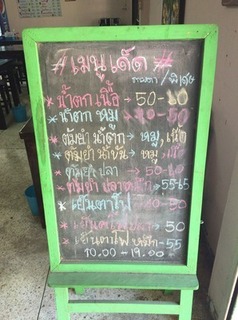 # เมนูเด็ด #
ธรรมดา / พิเศษ
* น้ำตกเนื้อ → 50-60
* น้ำตก หมู → 50-60
* ต้มยำ น้ำตก → หมู, เนื้อ
* ต้มยำ น้ำข้น → หมู
* ต้มยำ ปลา → 50-60
* ต้มยำ ปลาหมึก → 55-65
* เย็นตาโฟ 50
* เย็นตาโฟ 50
* เย็นตาโฟ ปลาหมึก - 55
10.00 - 19.00